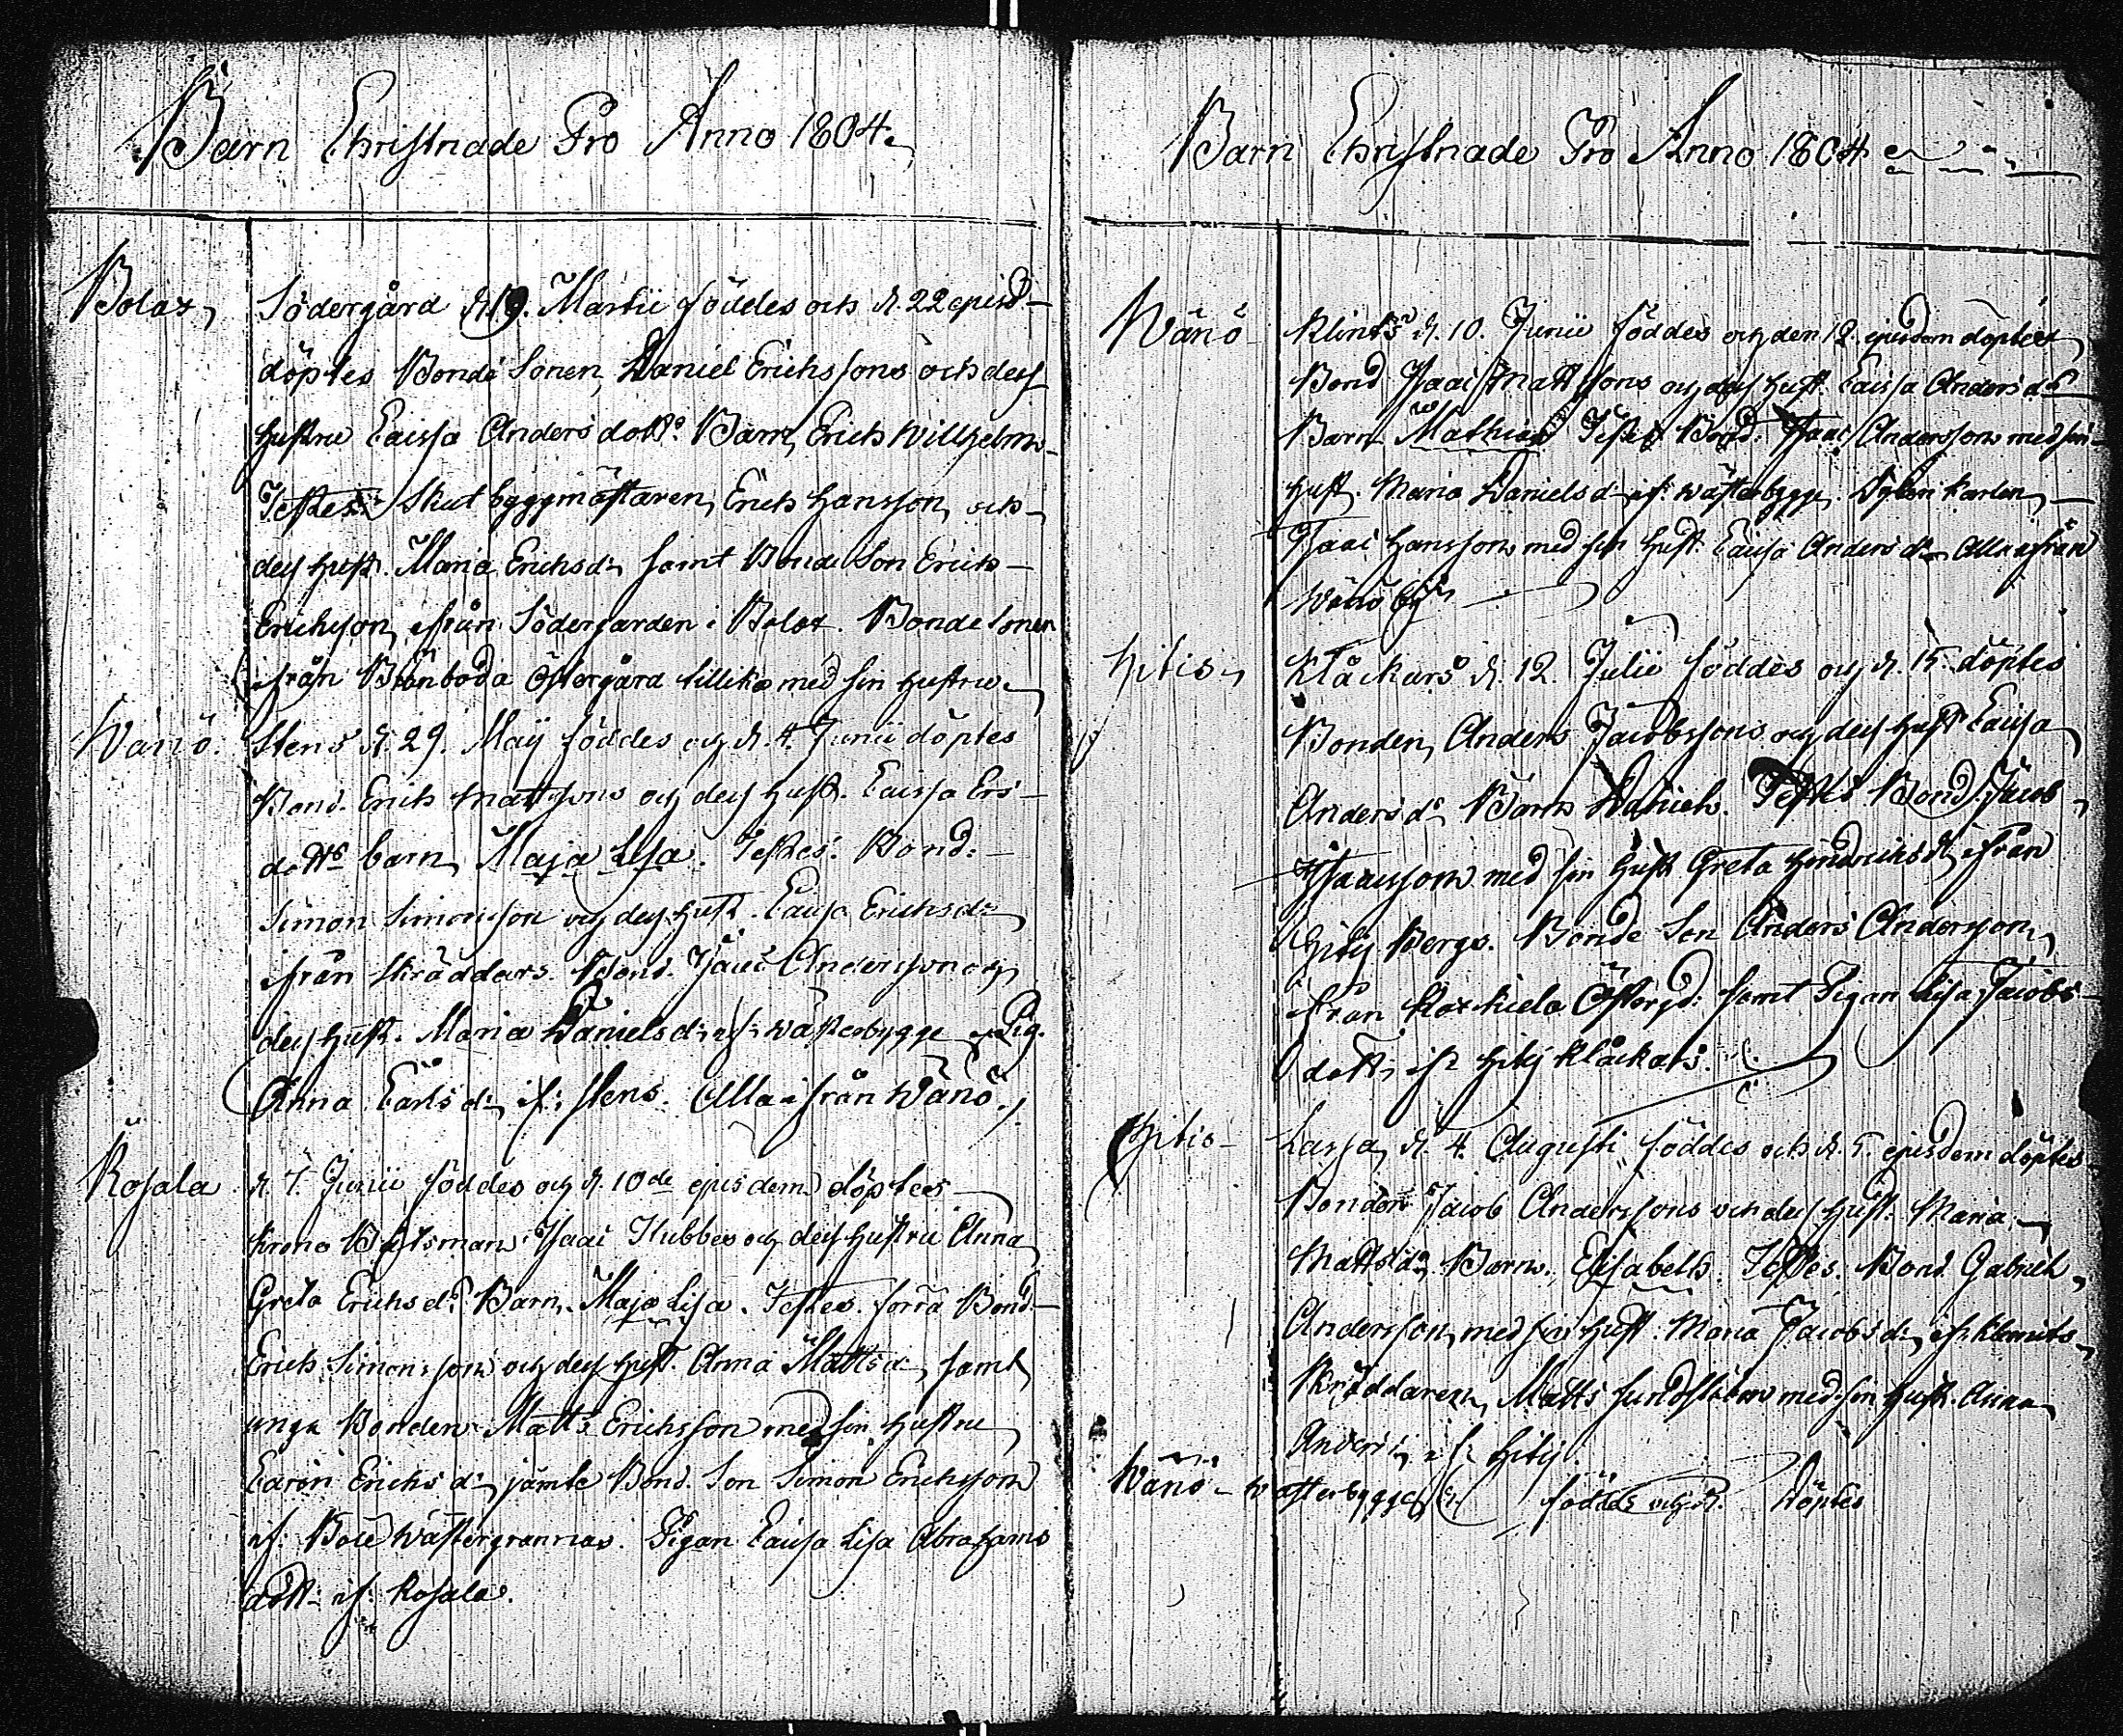 Barn Christnade Pro Anno 1804.
Bolax, Södergård d. 19. Martii föddes och d. 22 ejusd
döptes Bonde Sonen, Daniel Erichssons och dess
hustru Caissa Anders dotts. Barn, Erich Willhelm
Testes: Skut byggmästaren, Erich Hansson, och
dess hust. Maria Erichsd: samt Bonde Son Erich
Erichsson, ifrån Södergården i Bolax. Bonde Sonen
ifrån Östergård tillika med sin hustru
Wänö. Stens d. 29. Maij föddes och d. 4. Junii döptes
Bond. Erich Mattssons och dess Hust. Caissa Ers
dotts barn, Maja Lisa. Testes. Bond:
Simon Simonsson och dess hust. Caisa Erichsd:
ifrån Skräddars. Bond. Isaac Andersson och
dess hust. Maria Daniels d: if: wästerbygge Pig.
Anna Carls d: if: Stens. Alla ifrån Wänö.
Rosala d. 7. Junii föddes och d. 10de ejusdem döptes
krono Båtsman Isaac Stubbes och dess hustru Anna
Greta Erichs ds Barn, Maja Lisa. Testes. förra Bond
Erich Simonsson och dess hust. Anna Matts d: samt
unga Bonden Matts Erichsson med sin hustru
Carin Erichs d: jämte Bond. Son Simon Erichsson
if: Böle wästergrannas. Pigan Caisa Lisa Abrahams
dott: if: Rosala.
Barn Christnade Pro Anno 1804
Wänö Klints d. 10. Junii föddes och den 12. ejusdem döptes
Bond Isaac Mattssons och dess hust. Caissa Anders ds
Barn Mathias Testes Bond. Isaac Andersson med sin
hust. Maria Daniels d: if: wästerbygge.
Isaac Hansson med sin hust. Caisa Anders d: alla ifrån
Wänö by
Hitis, Klåckars d. 12. Julii föddes och d. 15. döptes
Bonden, Anders Jacobssons och dess hust Caisa
Anders ds Barn Testes Bond. Jacob
Isaacsson med sin hust Greta Hindrichsd: ifrån
Hitis Bergs. Bonde Son Anders Andersson,
ifrån Östergd: samt Pigan Lisa Jacobs
dott: if: Hitis Klåckars.
Hitis Lassa, d. 4. Augusti föddes och d. 5. ejusdem döptes
Bonden Jacob Anderssons och dess hust. Maria
Mattsds Barn. Elisabeth. Testes. Bond. Gabriel
Andersson, med sin hust. Maria Jacobs d: if: Klemets
Skräddaren, Matts med sin hust. Anna
Andersd: if: Hitis.
Wänö wästerbygge d. föddes och d. döptes